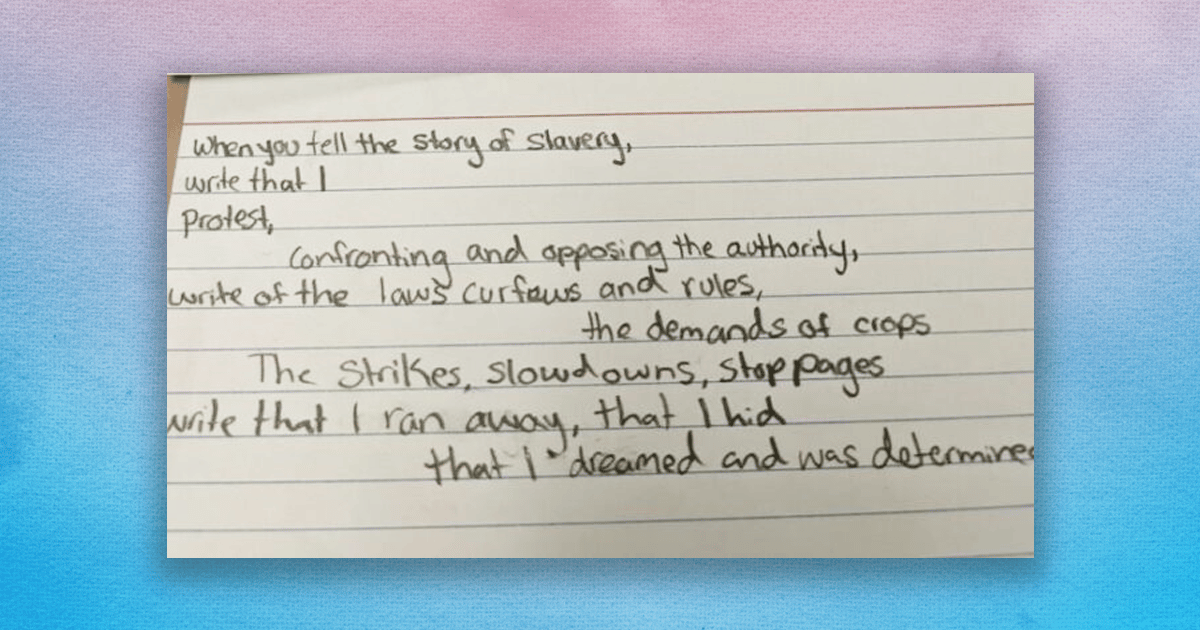 When you tell the story of slavery,
write that I
Protest,
Confronting and opposing the authority,
write of the laws curfews and rules,
the demands of crops
The Strikes, slowdowns, stoppages
write that I ran away, that I hid
that I dreamed and was determined